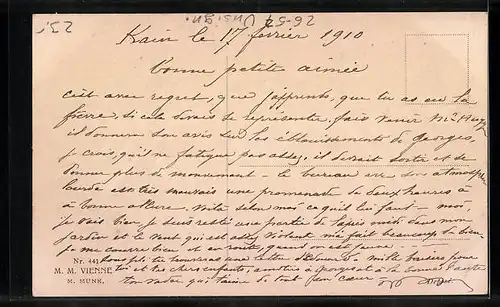 Kain le 17 février 1910
bonne petite aimée
c'est avec regret, que j'apprends, que tu as eu la
fièvre, si cela devais se représenter, fais venir Mr
il donnera son avis sur les éblouissements de Georges,
je crois, qu'il ne fatigue pas assez, il devrait sortir et se
donner plus de mouvement - le bureau avec son atmosphère
lourde est très mauvais une promenade de deux heures à
à bonne allure, voilà selon moi ce qu'il lui faut - moi,
je vais bien je suis resté une partie de l'après midi dans mon
jardin et le vent qui est assez violent m'a fait beaucoup de bien,
je me couvre bien et en route, quand on est jeune -
Nr. 441
mon fils tu trouveras une lettre et de mille baisers pour
M. M. VIENNE
toi et tes chers enfants, amitiés à Georges et à la bonne
M. MUNK.
ton vieux qui t'aime de tout son cœur